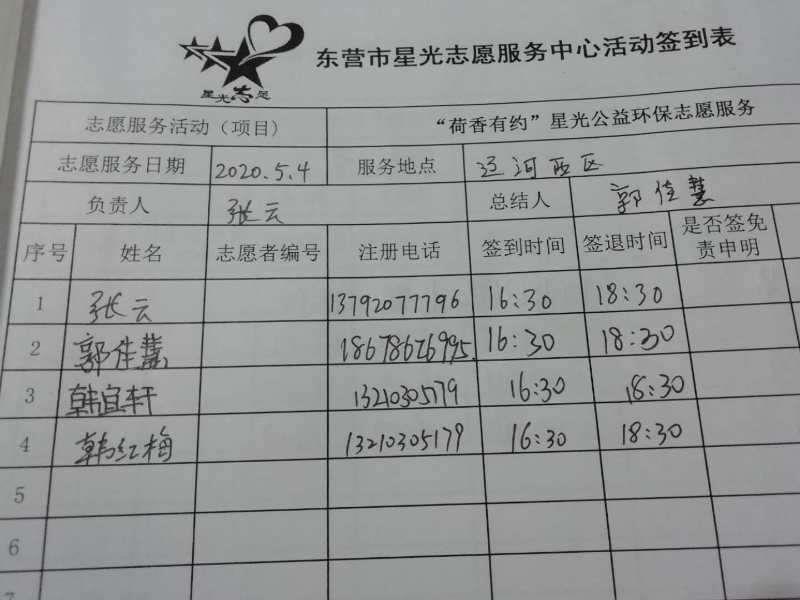 星光志愿
东营市星光志愿服务中心活动签到表
志愿服务活动（项目） “荷香有约”星光公益环保志愿服务
志愿服务日期 2020.5.4 服务地点 辽河西区
负责人 张云 总结人 郭佳慧
序号 姓名 志愿者编号 注册电话 签到时间 签退时间 是否签免责申明
1 张云 13792077796 16:30 18:30
2 郭佳慧 18678626995. 16:30 18:30
3 韩宜轩 1321030579 16:30 18:30
4 韩红梅 13210305179 16:30 18:30
5
6
7